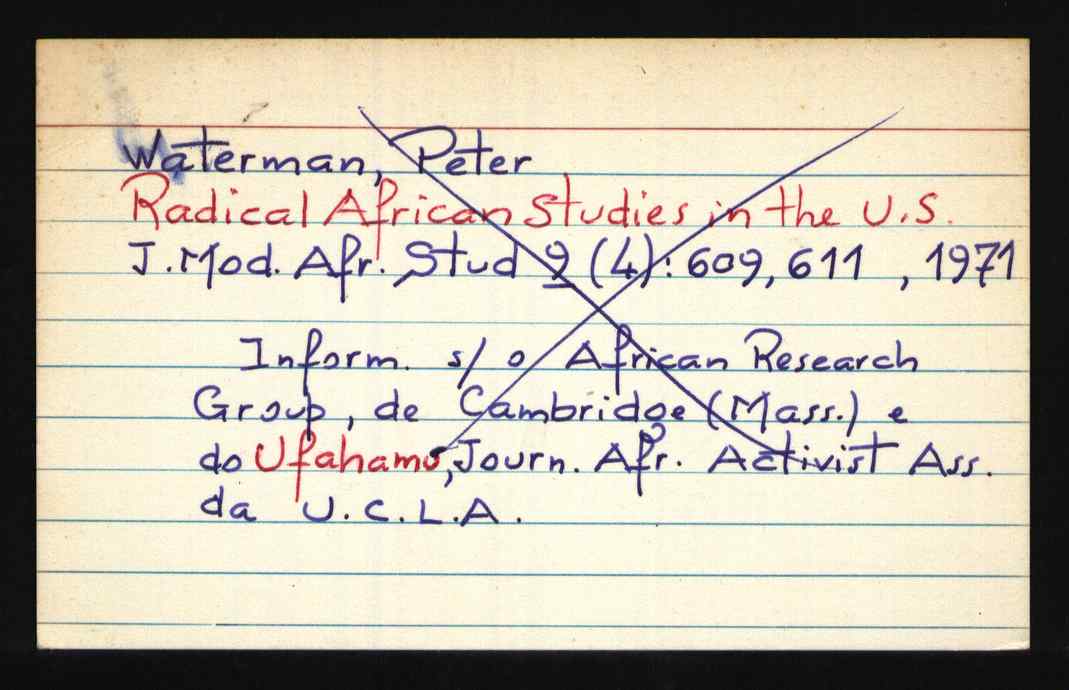 Waterman, Peter
Radical African Studies in the U.S.
J. Mod. Afr. Stud 9 (4): 609, 611 , 1971
Inform. s/ o African Research
Group, de Cambridge (Mass.) e
do Ufahamu, Journ. Afr. Activist Ass.
da U.C.L.A.